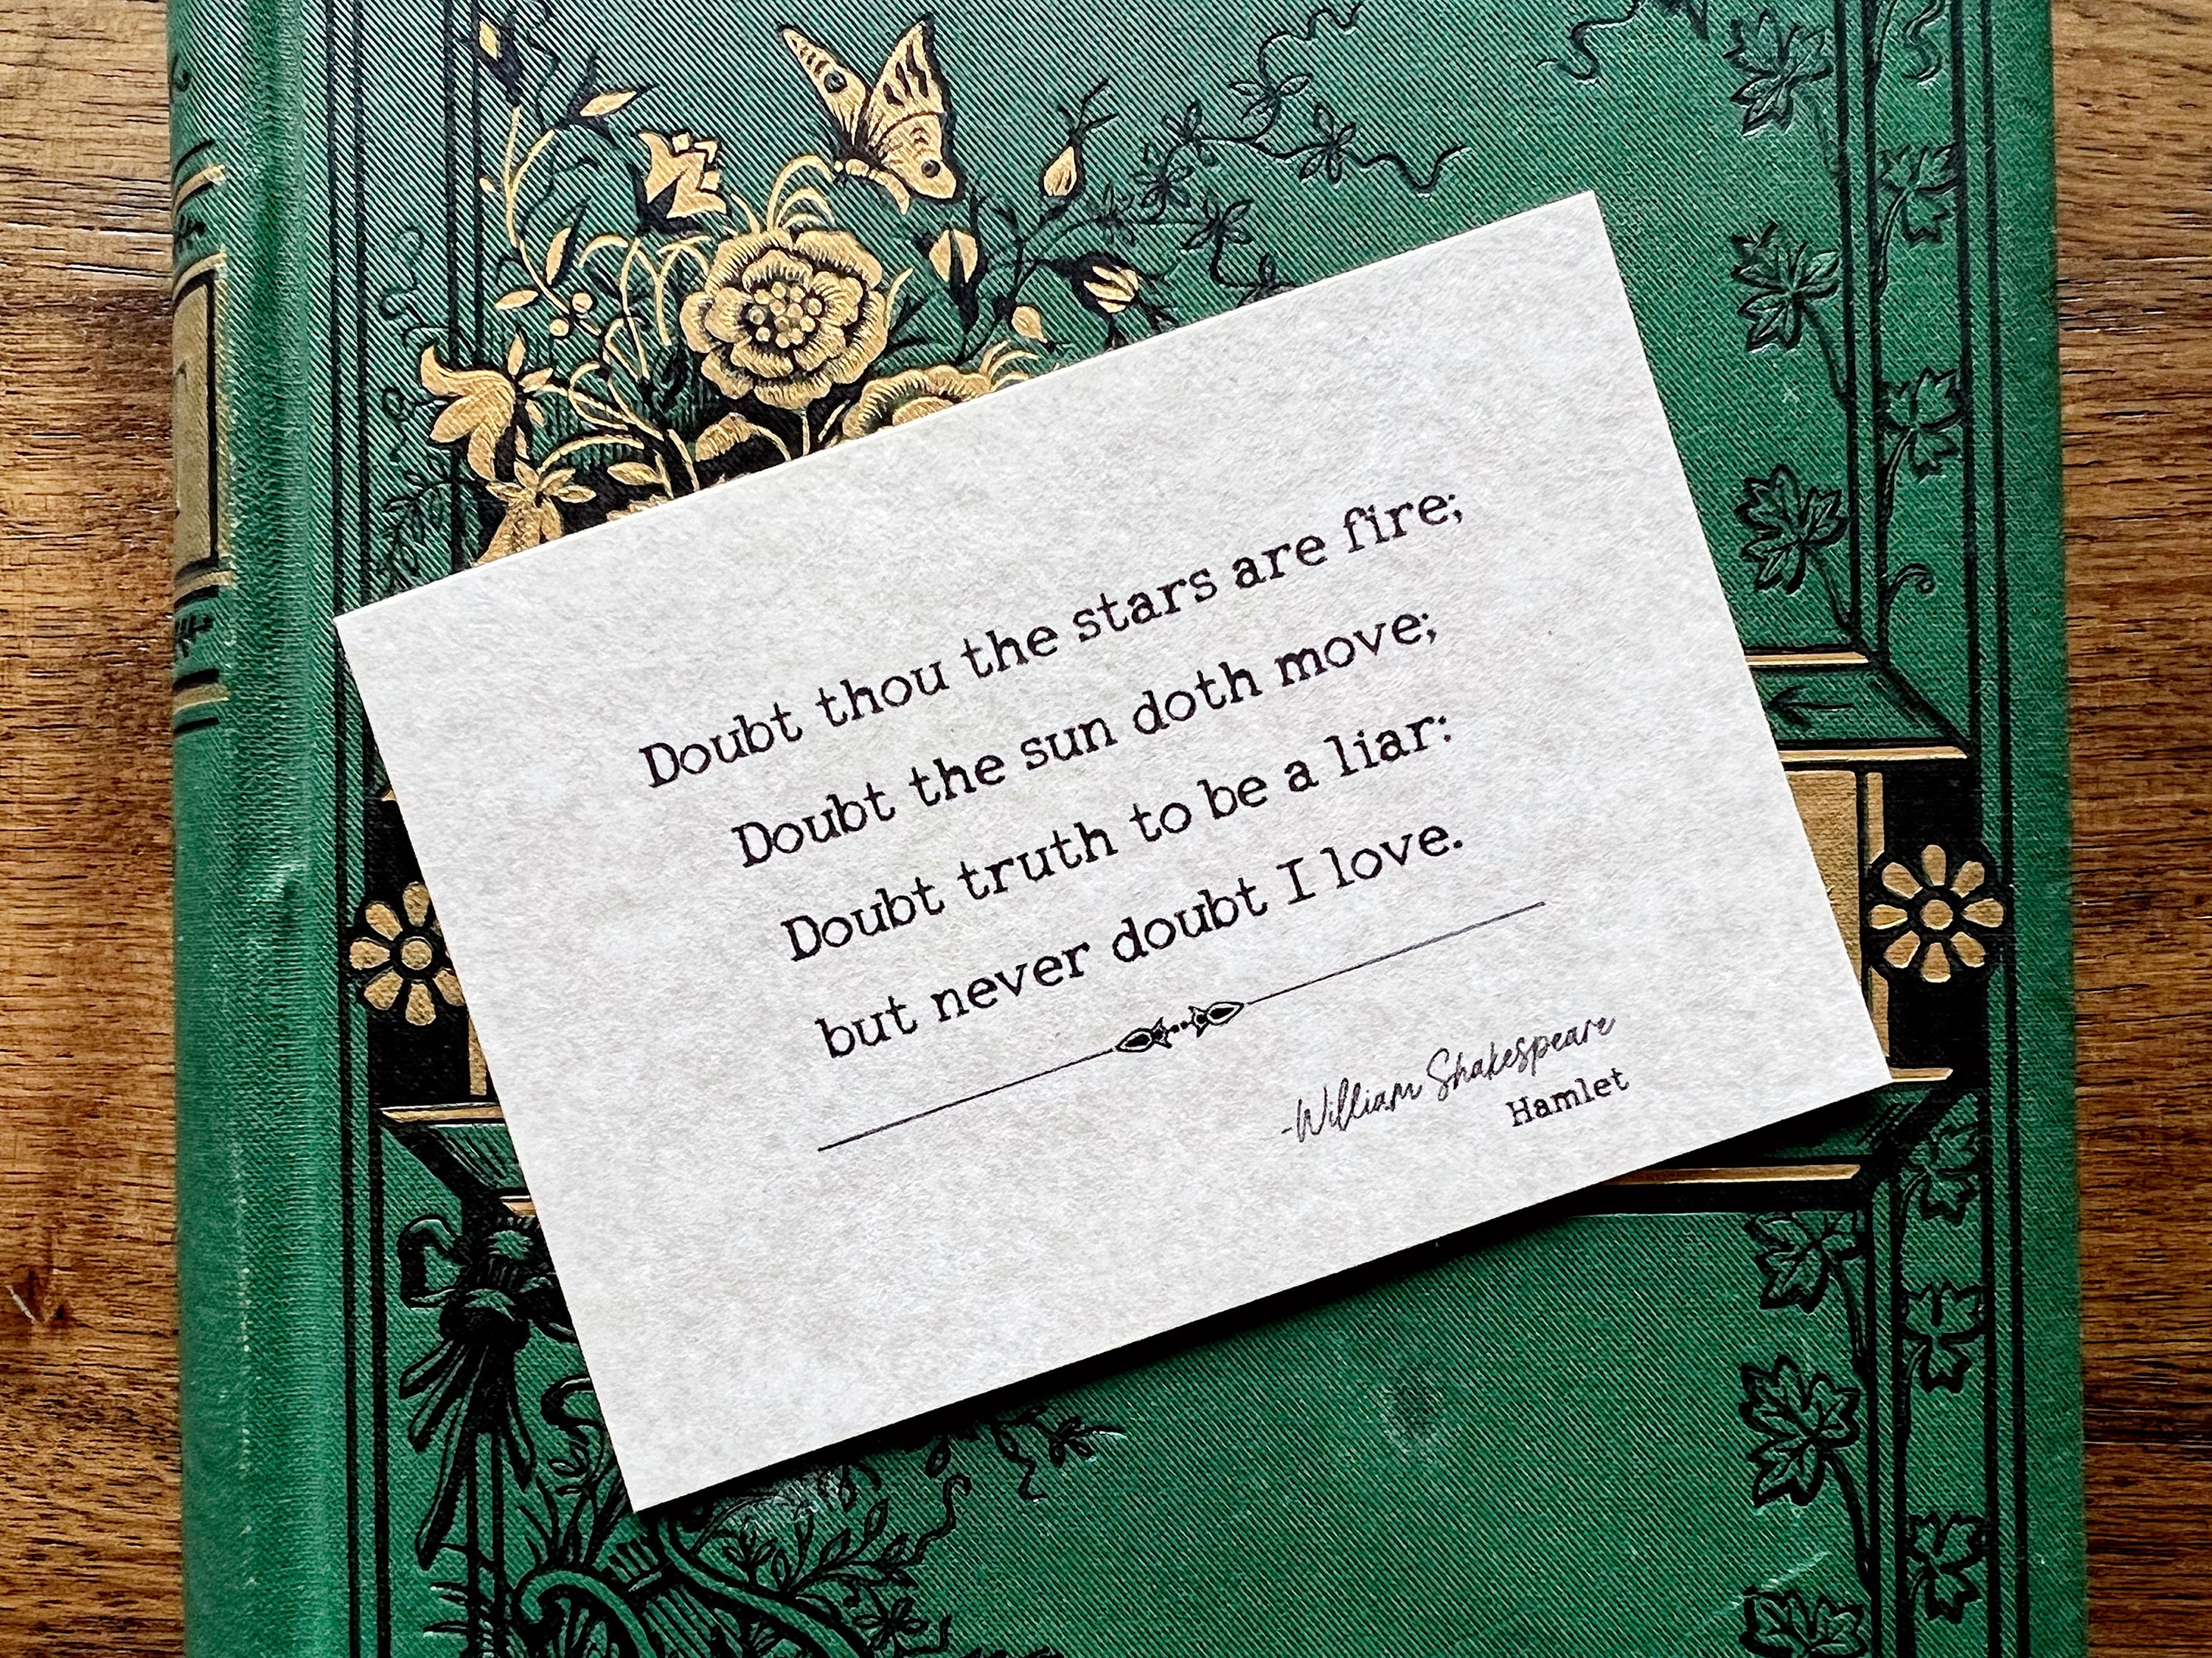 Doubt thou the stars are fire;
Doubt the sun doth move;
Doubt truth to be a liar:
but never doubt I love.
-William Shakespeare
Hamlet